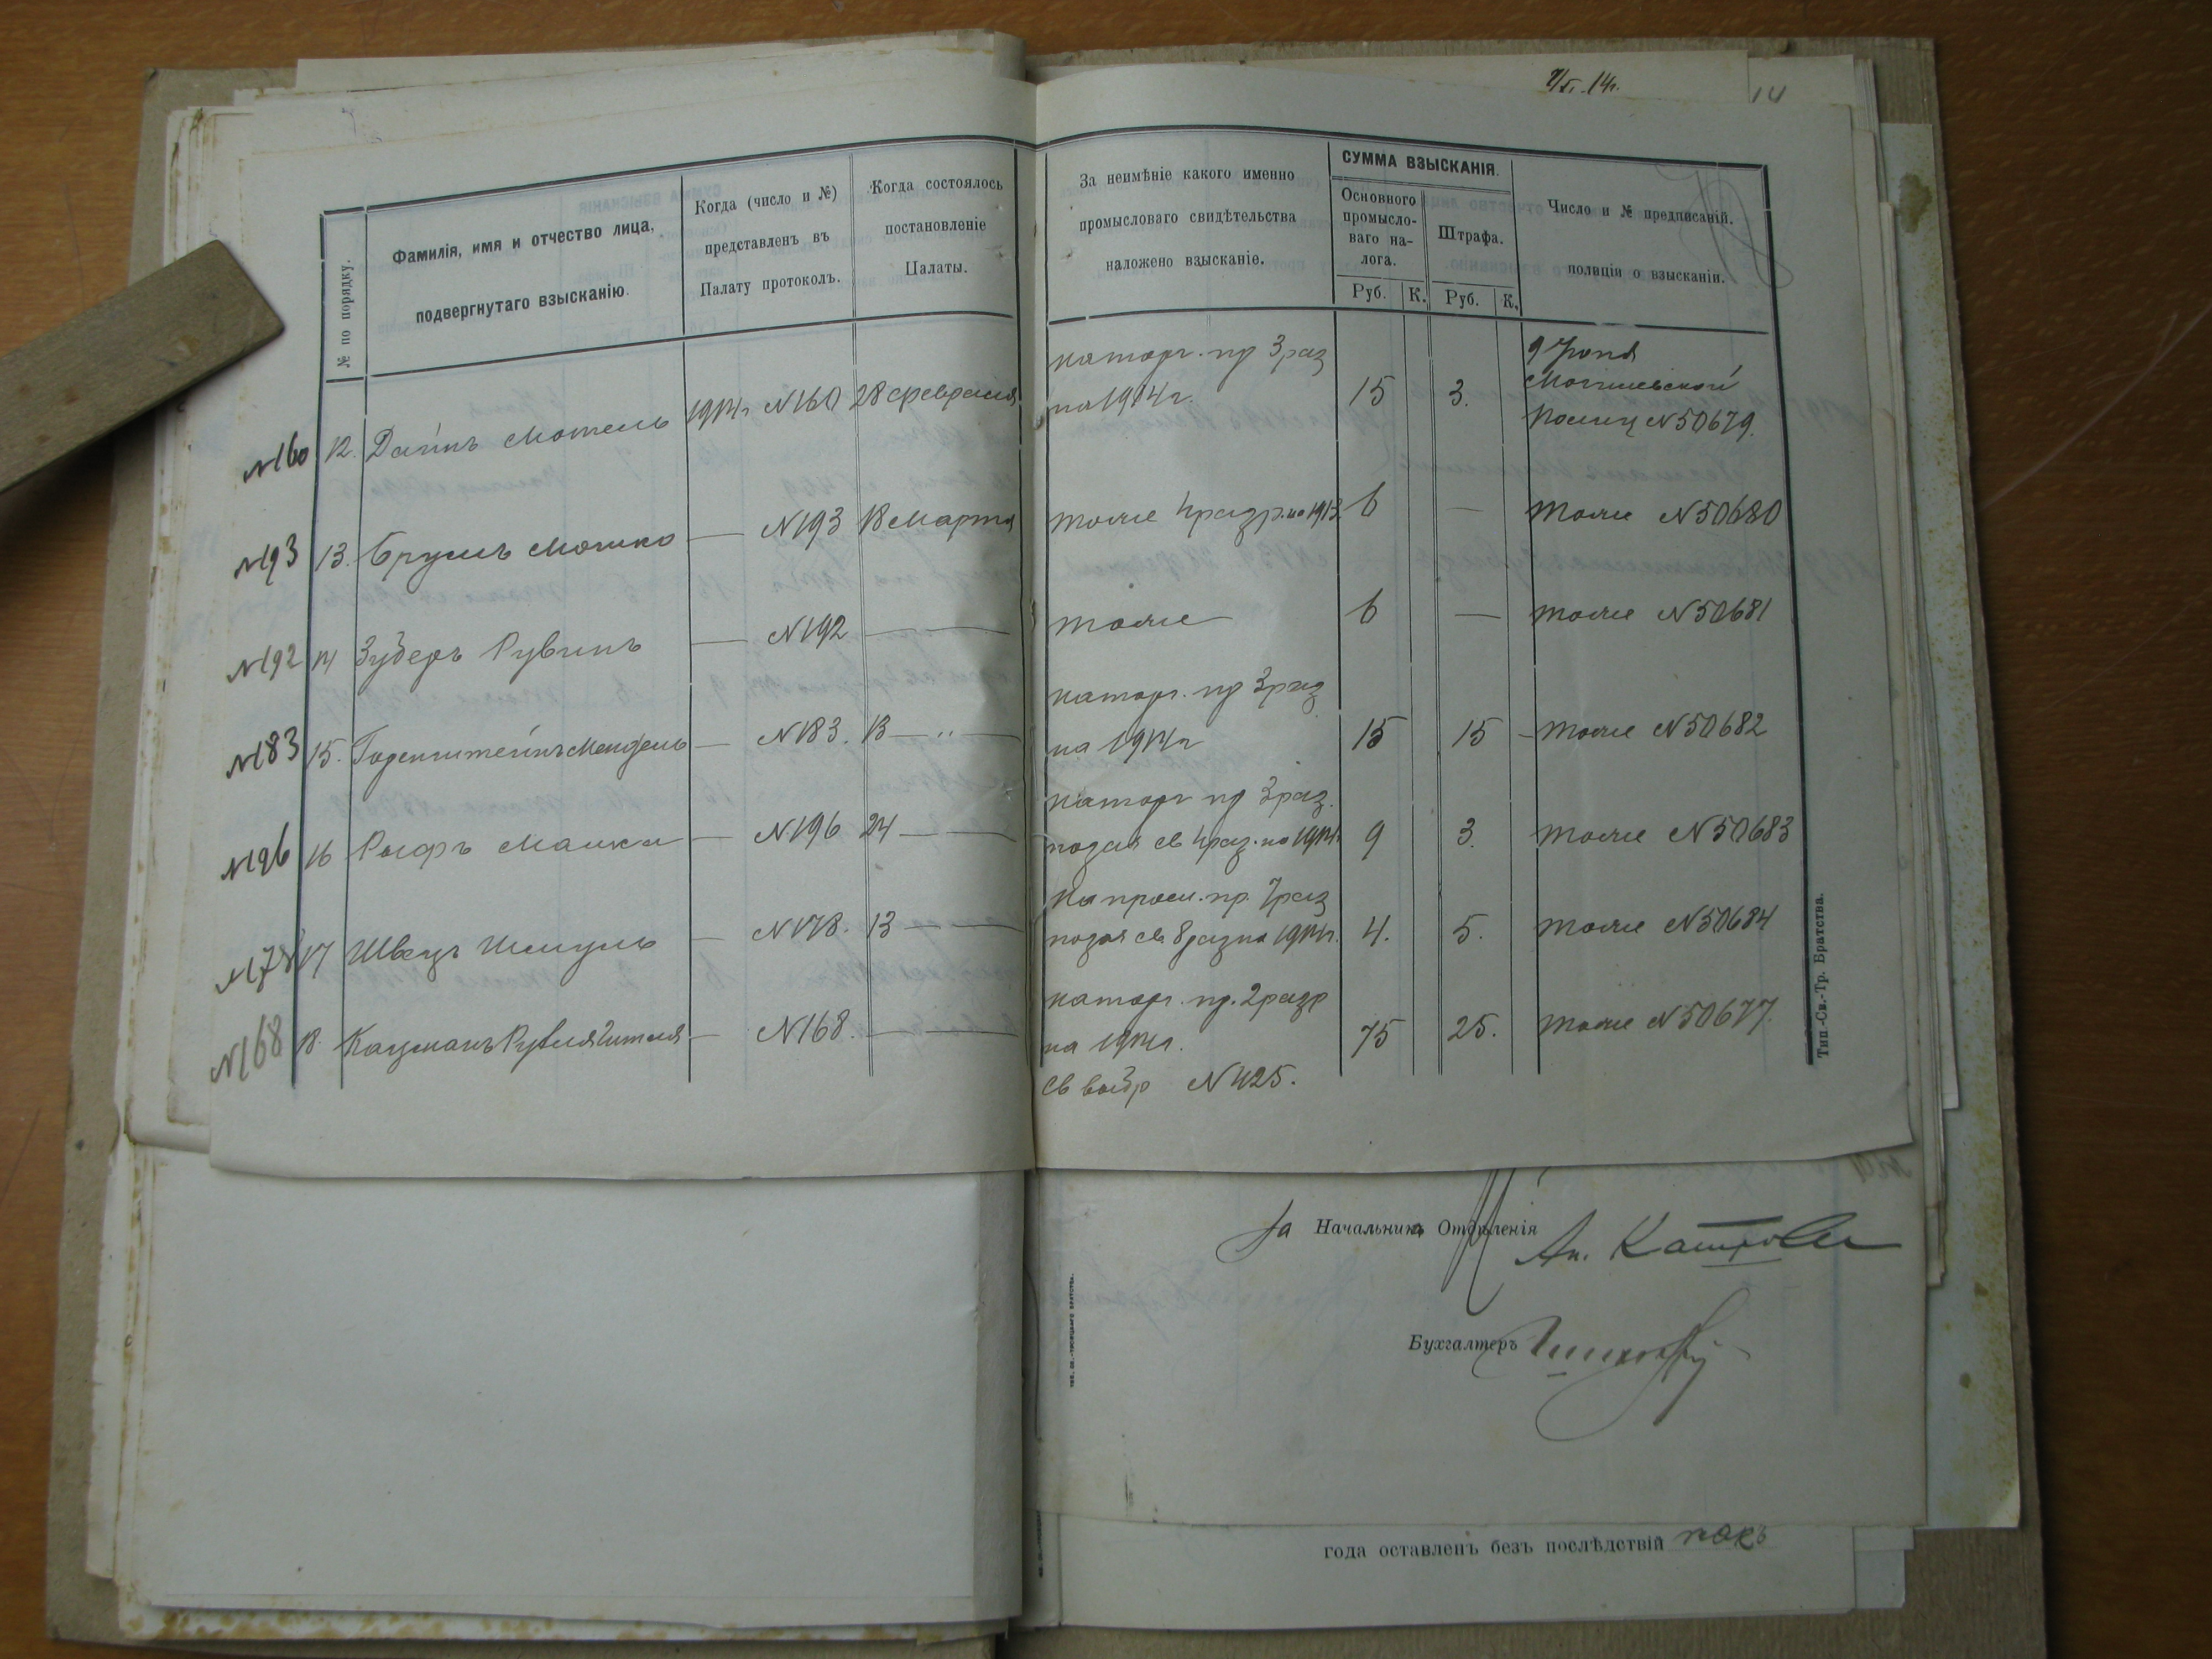 14
№ по порядку.
Фамилія, имя и отчество лица,
подвергнутаго взысканію.
Когда (число и №)
представленъ въ
Палату протоколъ.
Когда состоялось
постановленіе
Палаты.
За неимѣніе какого именно
промысловаго свидѣтельства
наложено взысканіе.
СУММА ВЗЫСКАНІЯ.
Основного
промысло-
ваго на-
лога.
Штрафа.
Руб. К. Руб. К.
Число и № предписаній.
полиціи о взысканіи.
на торг. пр 3 раз
№160 12. Дайнъ Мотель 1914г №160 28 февраля на 1914г. 15 3.
9 Іюня
Могилевской
полиц №50679.
№193 13. Бруль Мошко — №193 18 Марта тоже 4 разр. на 1913. 6 — тоже №50680
№192 14 Зудеръ Рувинъ — №192 — тоже 6 — тоже №50681
на торг. пр 3 раз
№183 15. Годенштейнъ Мендель — №183. 13 — „ — на 1914г 15 15 - тоже №50682
на торг пр 3 раз.
№196 16 Рыфъ Малка — №196 24 — св 4 раз. на 1914г 9 3. тоже №50683
на пром. пр. 7 раз
№178 17 Швецъ Шмуль — №178. 13 — св 8 раз на 1914г. 4. 5. тоже №50684
на торг. пр. 2 разр
№168 18. Кацманъ Рувля Гитля — №168. — на 1914г. 75 25. тоже №50677.
св выбр №425.
Тип.-Св.-Тр. Братства.
За Начальника Отдѣленія
Бухгалтеръ
года оставленъ безъ послѣдствій